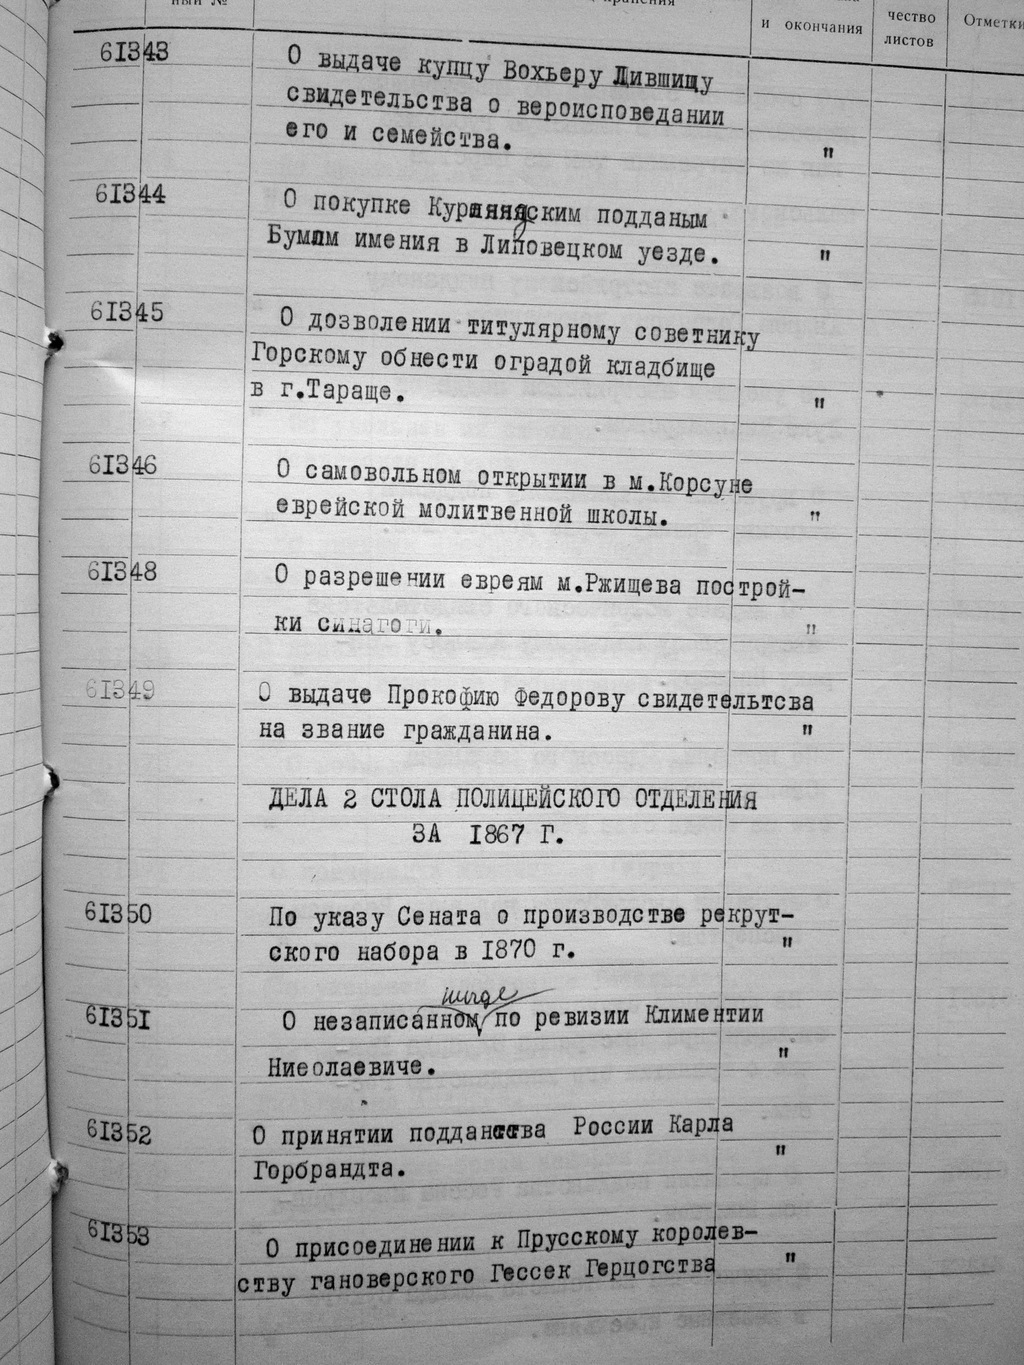 ный №
и окончания
чество
листов
Отметки
61343 О выдаче купцу Вохьеру Лившицу
свидетельства о вероисповедании
его и семейства. "
61344 О покупке ским подданым
имения в Липовецком уезде. "
61345 О дозволении титулярному советнику
Горскому обнести оградой кладбище
в г.Тараще. "
61346 О самовольном открытии в м.Корсуне
еврейской молитвенной школы. "
61348 О разрешении евреям м.Ржищева построй-
ки синагоги. "
61349 О выдаче Прокофию Федорову свидетельтсва
на звание гражданина. "
ДЕЛА 2 СТОЛА ПОЛИЦЕЙСКОГО ОТДЕЛЕНИЯ
ЗА 1867 Г.
61350 По указу Сената о производстве рекрут-
ского набора в 1870 г. "
нигде
61351 О незаписанном по ревизии Климентии
Ниеолаевиче. "
61352 О принятии подданства России Карла
Горбрандта. "
61353 О присоединении к Прусскому королев-
ству гановерского Гессек Герцогства "